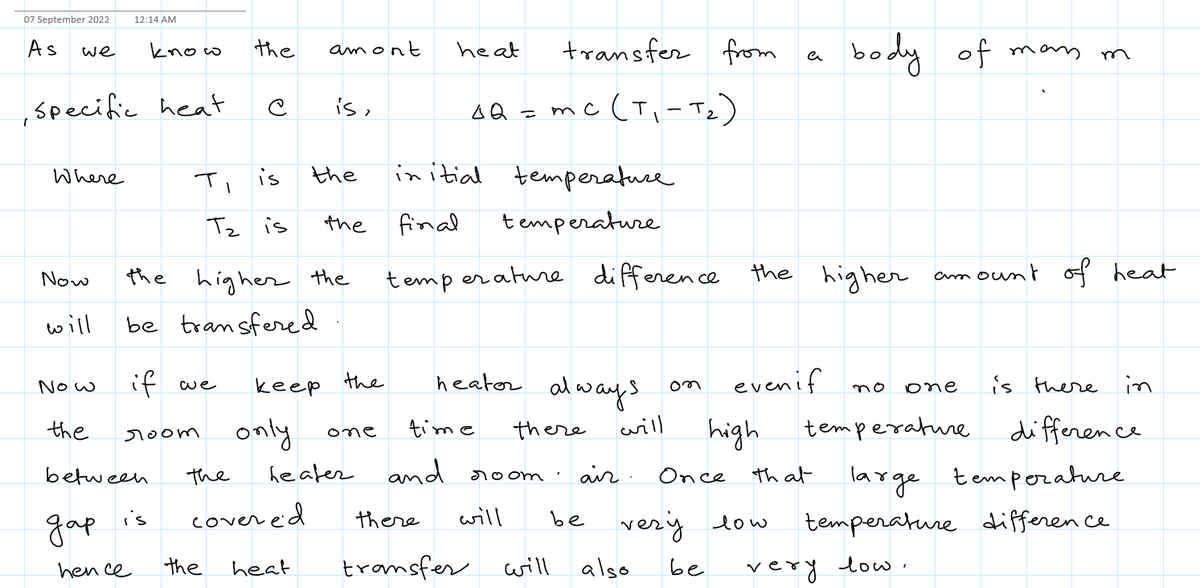 07 September 2022 12:14 AM
As we know the amont heat transfer from a body of mass m
, specific heat c is, ΔQ = mc (T₁ - T₂)
Where T₁ is the initial temperature
T₂ is the final temperature
Now the higher the temperature difference the higher amount of heat
will be transfered.
Now if we keep the heator always on evenif no one is there in
the room only one time there will high temperature difference
between the heater and room air. Once that large temperature
gap is covered there will be very low temperature difference
hence the heat transfer will also be very low.